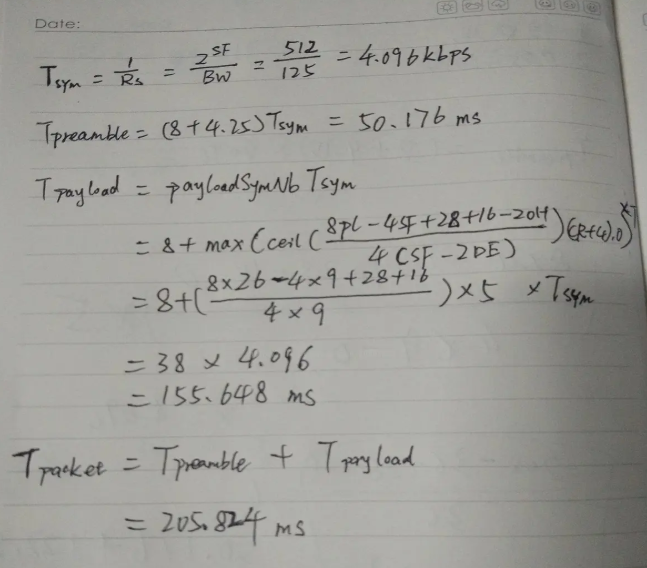 Date:
Tsym = 1/Rs = 2^SF/BW = 512/125 = 4.096kbps
Tpreamble = (8+4.25)Tsym = 50.176 ms
Tpayload = payloadSymNb Tsym
= 8 + max(ceil((8PL-4SF+28+16-20H)/(4(SF-2DE)))(CR+4),0)×T
= 8+((8×26-4×9+28+16)/(4×9))×5 ×Tsym
= 38 × 4.096
= 155.648 ms
Tpacket = Tpreamble + Tpayload
= 205.824 ms